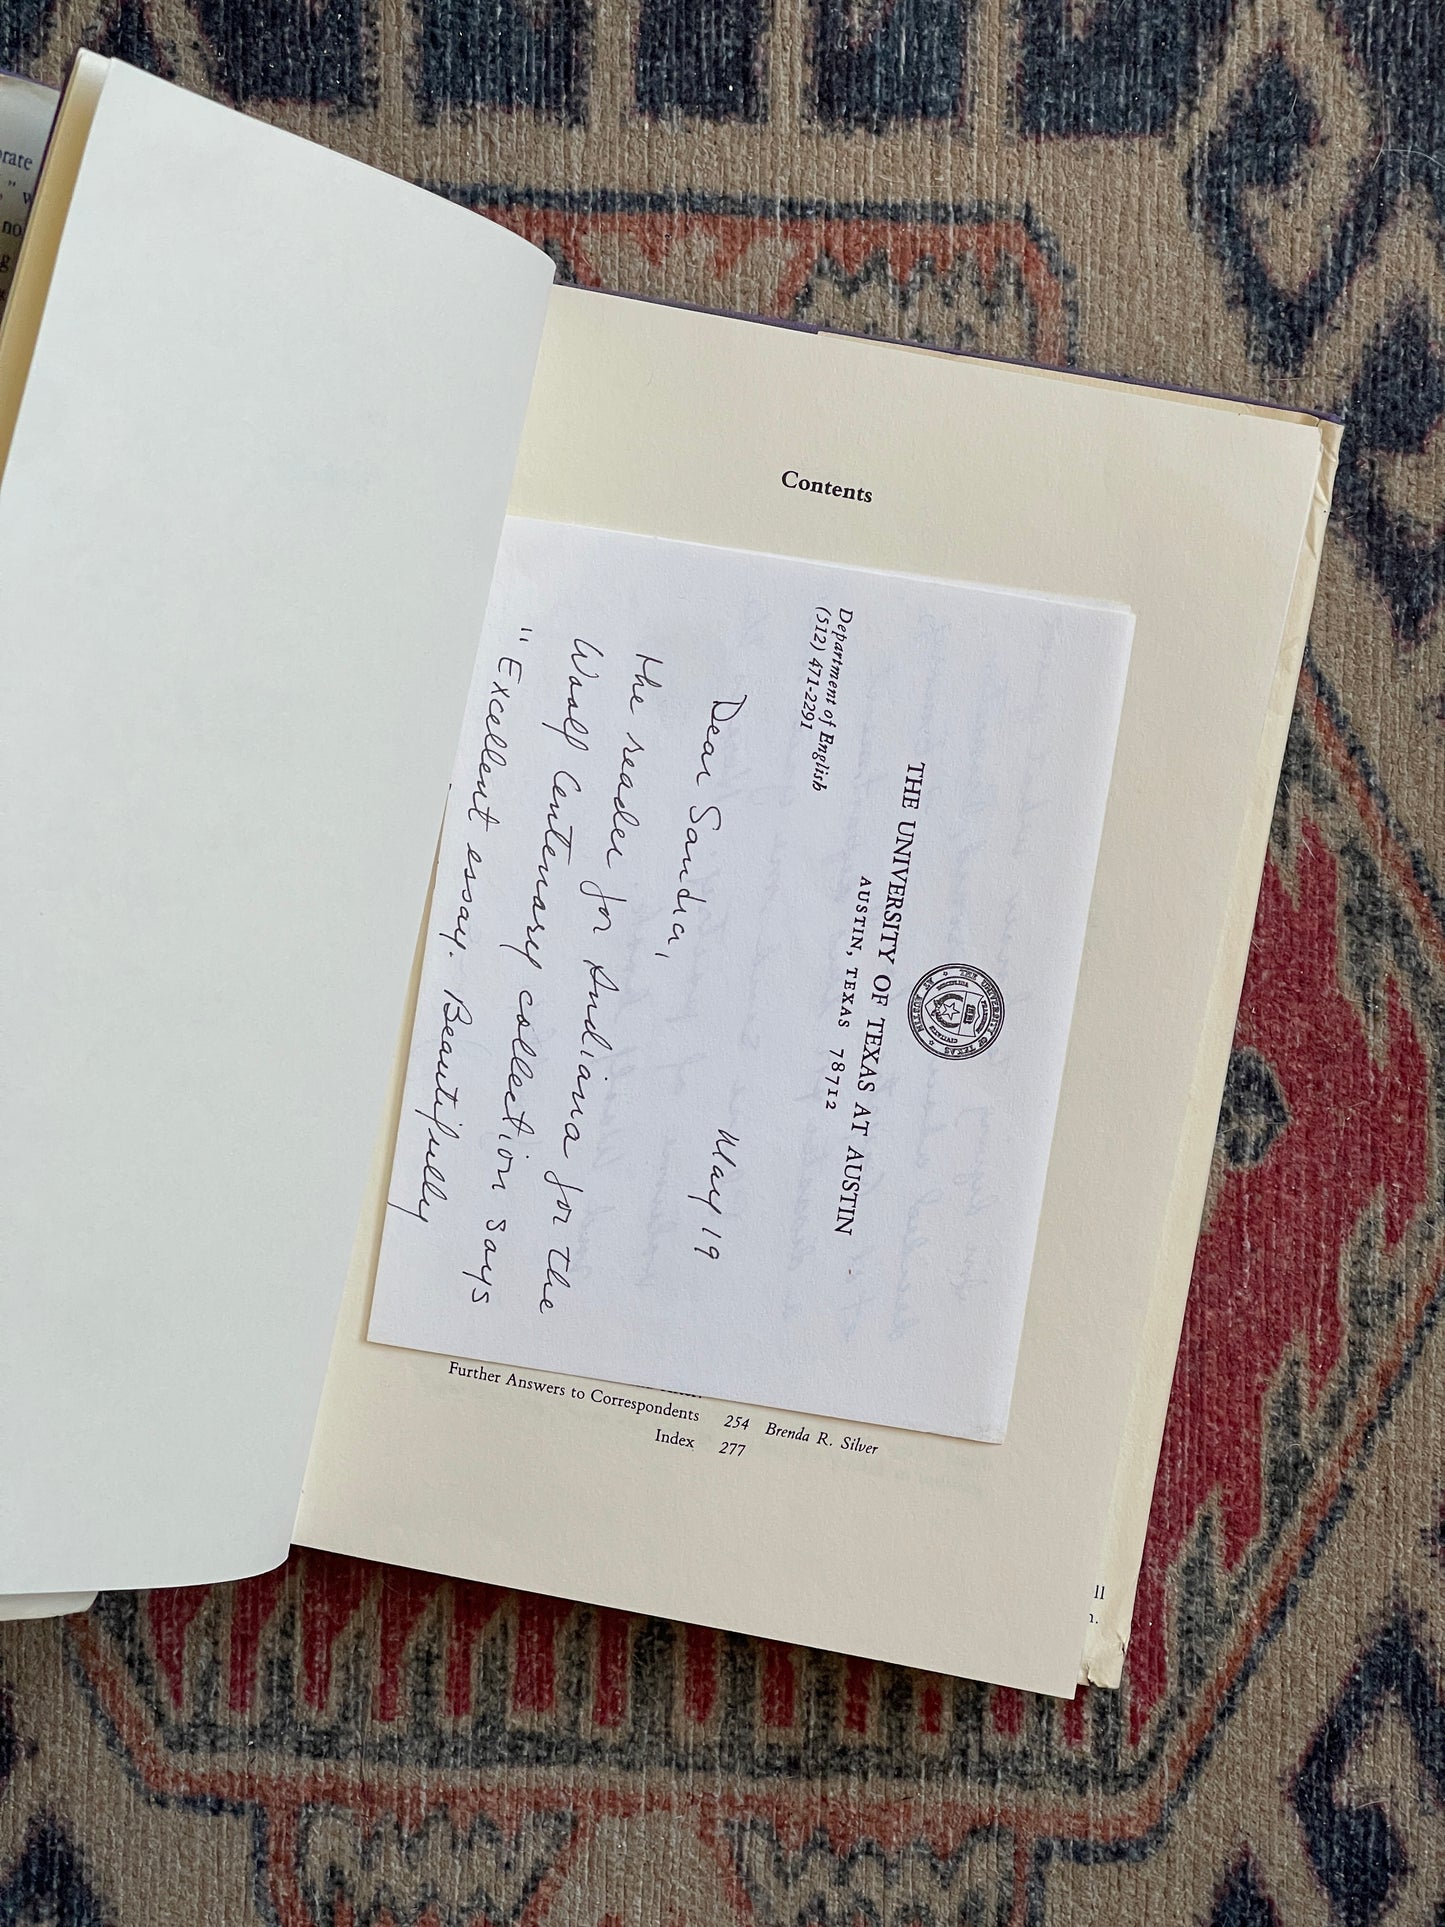 Contents
THE UNIVERSITY OF TEXAS AT AUSTIN
AUSTIN, TEXAS 78712
Department of English
(512) 471-2291
May 19
Dear Sandra,
the reader for Indiana for the
Woolf Centenary collection says
"Excellent essay. Beautifully
Further Answers to Correspondents 254 Brenda R. Silver
Index 277